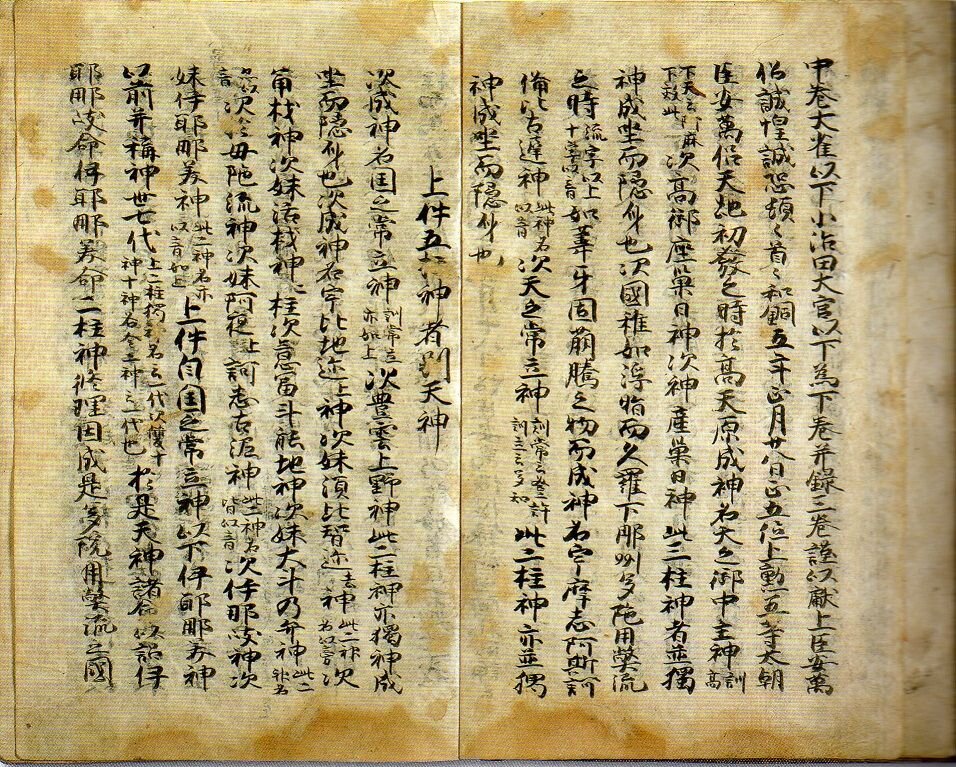 中巻大雀以下小治田大宮以下為下巻并録三巻謹以献上臣安萬
侶誠惶誠恐頓〻首〻和銅五年正月廿八日正五位上勲五等太朝
臣安萬侶天地初發之時於高天原成神名天之御中主神訓高
下天云阿麻下效此次高御產巣日神次神產巣日神此三柱神者並獨
神成坐而隠身也次國稚如浮脂而久羅下那州多陁用弊流
之時流字以上十字以音如葦牙因萌騰之物而成神名宇摩志阿斯訶
備比古遅神此神名以音次天之常立神訓常云登許訓立云多知此二柱神亦並獨
神成坐而隠身也
上件五柱神者別天神
次成神名国之常立神訓常立亦如上次豊雲上野神此二柱神亦獨神成
坐而隠身也次成神名宇比地迩上神次妹須比智迩去神此二神名以音次
角杙神次妹活杙神二柱次意富斗能地神次妹大斗乃弁神此二神名
亦以音次於母陁流神次妹阿夜上訶志古泥神此二神名皆以音次伊耶那岐神次
妹伊耶那美神此二神名亦以音如上上件自国之常立神以下伊耶那美神
以前并稱神世七代上二柱獨神各云一代次雙十神各合二神云一代也於是天神諸命以詔伊
耶那岐命伊耶那美命二柱神修理固成是多陁用弊流之國